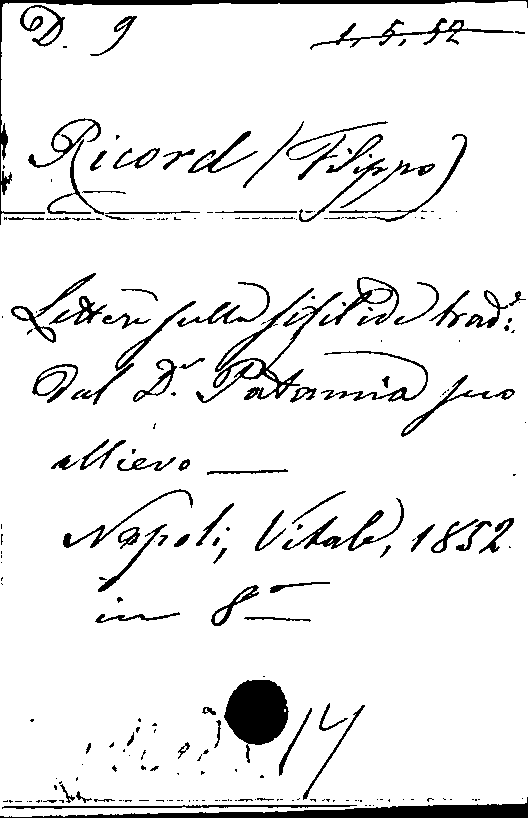 D. 9 1, 5, 52
Ricord (Filippo)
Lettere sulla sifilide trad:e
dal Dr. Patamia suo
allievo —
Napoli, Vitale, 1852
in 8°